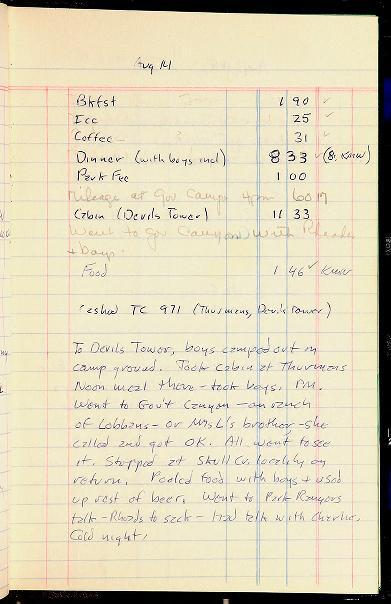 Aug 14
Bkfst 1 90 ✓
Ice 25 ✓
Coffee 31 ✓
Dinner (with boys incl) 8 33 ✓ (8, KMW)
Park Fee 1 00
Mileage at Gov Camp 4pm 60
Cabin (Devils Tower) 11 33
Went to Gov Canyon with Rhoads
+ boys.
Food 1 46 ✓ KMW
cashed TC 971 (Thurmans, Devils Tower)
To Devils Tower, boys camped out in
camp ground. Took cabin at Thurmans
Noon meal there - took boys. P.M.
Went to Gov't Canyon - on ranch
of Lobbans - or Mrs L's brother - she
called and got OK. All went to see
it. Stopped at Skull Cr. locality on
return. Pooled food with boys + used
up rest of beer. Went to Park Rangers
talk - Rhoads to sack - had talk with Charlie.
Cold night.